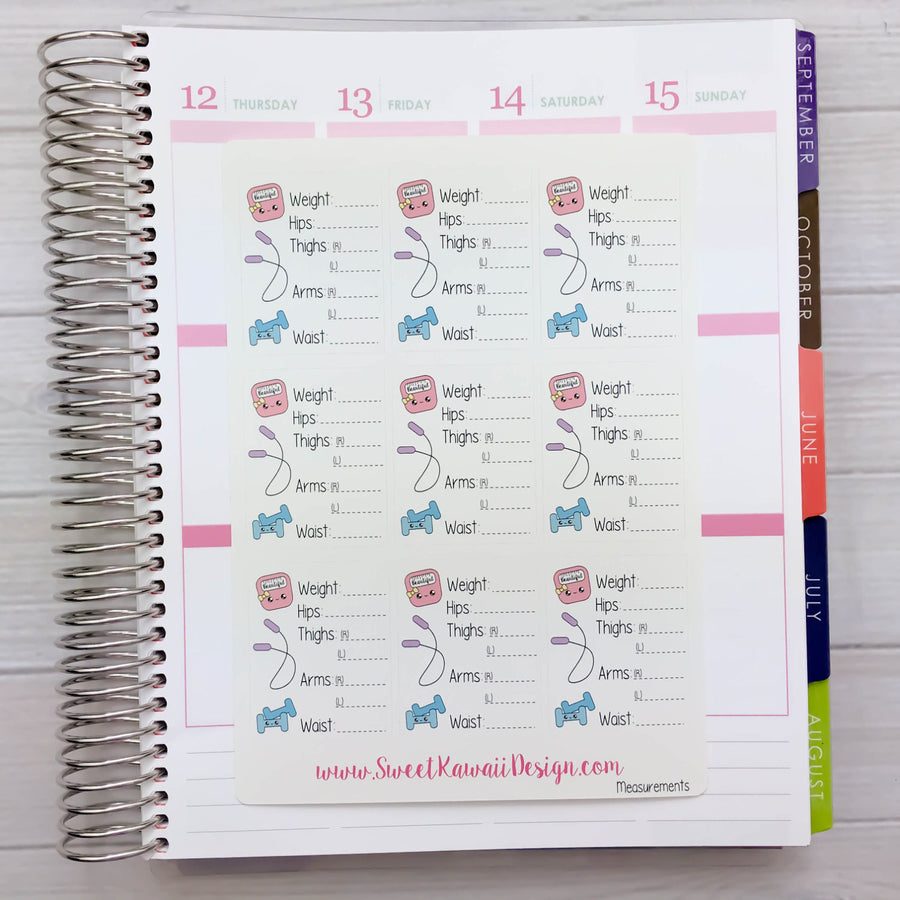 12 THURSDAY 13 FRIDAY 14 SATURDAY 15 SUNDAY
SEPTEMBER
OCTOBER
JUNE
JULY
AUGUST
Beautiful Weight: Beautiful Weight: Beautiful Weight:
Hips: Hips: Hips:
Thighs: (R) Thighs: (R) Thighs: (R)
(L) (L) (L)
Arms: (R) Arms: (R) Arms: (R)
(L) (L) (L)
Waist: Waist: Waist:
Beautiful Weight: Beautiful Weight: Beautiful Weight:
Hips: Hips: Hips:
Thighs: (R) Thighs: (R) Thighs: (R)
(L) (L) (L)
Arms: (R) Arms: (R) Arms: (R)
(L) (L) (L)
Waist: Waist: Waist:
Beautiful Weight: Beautiful Weight: Beautiful Weight:
Hips: Hips: Hips:
Thighs: (R) Thighs: (R) Thighs: (R)
(L) (L) (L)
Arms: (R) Arms: (R) Arms: (R)
(L) (L) (L)
Waist: Waist: Waist:
www.SweetKawaiiDesign.com
Measurements